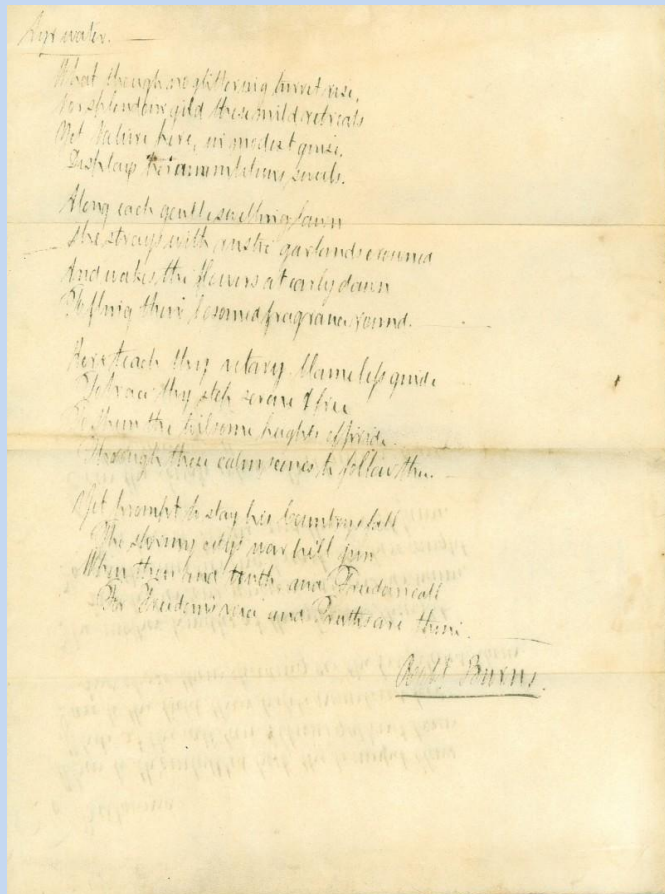 Ayr water.
What though no glittering turret rise,
Nor splendour gild these mild retreats
Yet Nature here, in modest guise,
Displays her unambitious sweets.
Along each gentle swelling lawn
She strays with rustic garlands crowned
And wakes the flowers at early dawn
To fling their bosomed fragrance round.
Here teach thy votary blameless guide
To trace thy step serene & free
To shun the toilsome heights of pride
Through these calm scenes to follow thee.
Yet prompt to stay his Country's fall
The stormy city's war he'll join
When thou and truth and Freedom call
For Freedom's and Truths are thine.
Robt Burns.